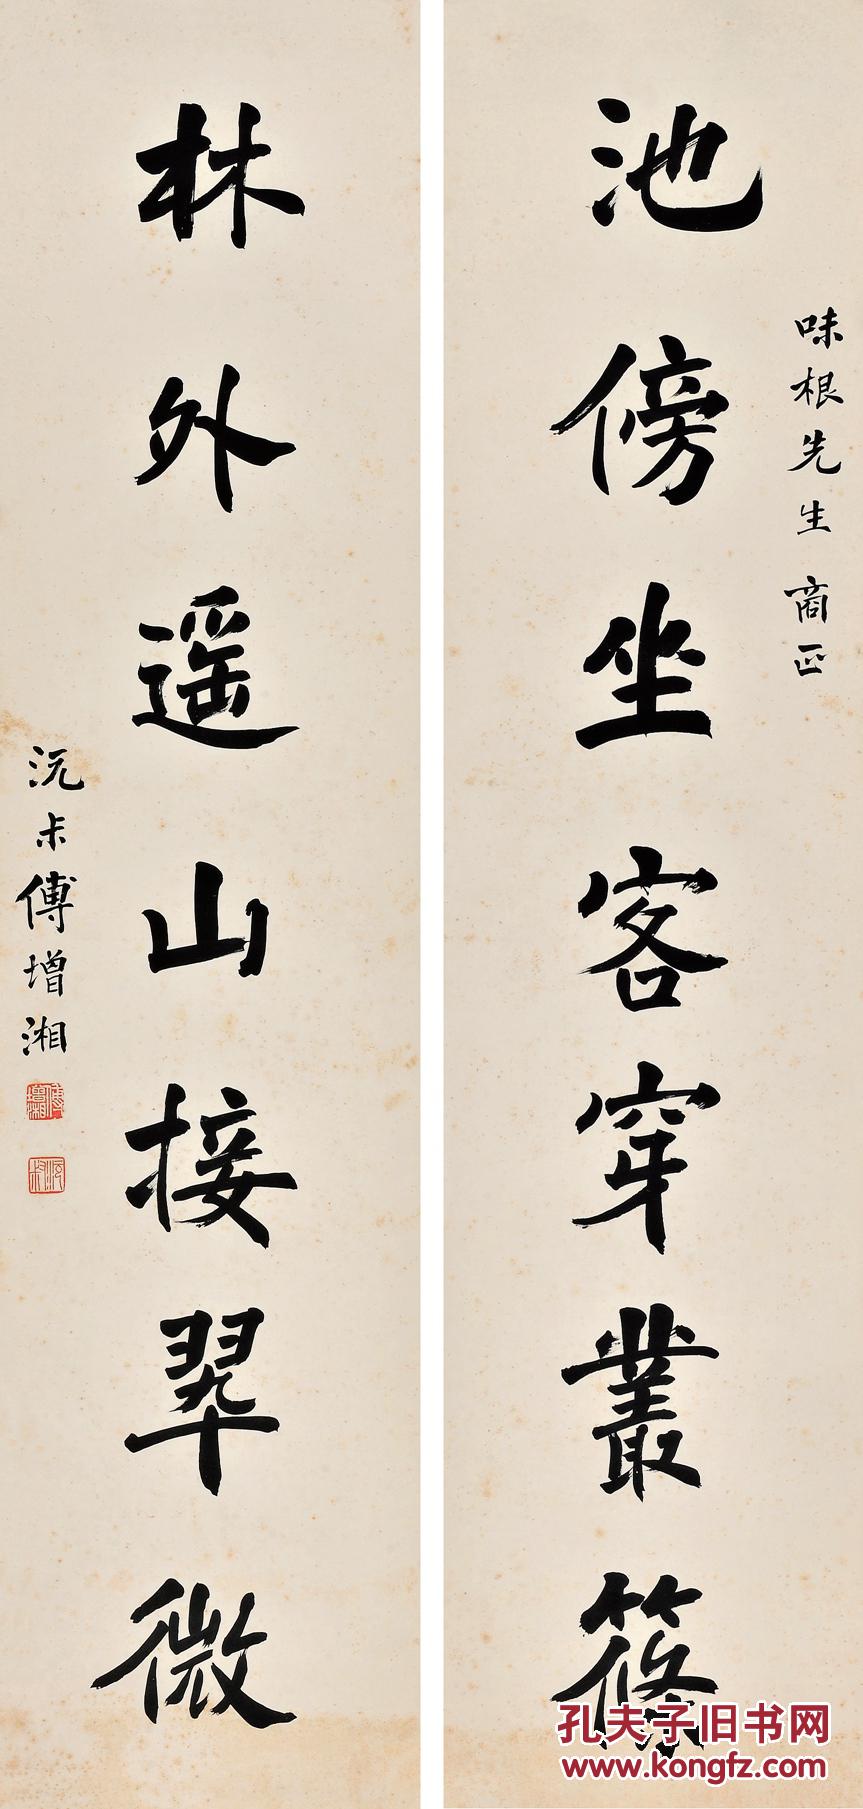 池傍坐客穿叢篠
味根先生 商正
林外遥山接翠微
沅尗傅增湘
傅增湘
沅尗
孔夫子旧书网
www.kongfz.com